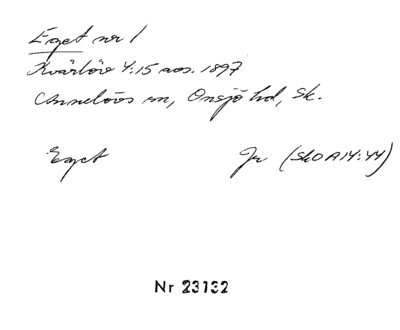 Eget nr 1
Kvärlöv 4:15 avs. 1897
Annelövs sn, Onsjö hd, Sk.
Eget Jr (SkOA14:44)
Nr 23132